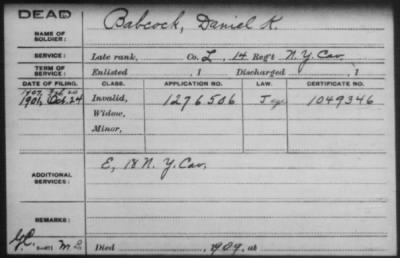 DEAD
NAME OF SOLDIER: Babcock, Daniel K.
SERVICE: Late rank, Co. L, 14 Reg't N.Y. Cav.
TERM OF SERVICE: Enlisted , 1 Discharged , 1
DATE OF FILING. CLASS. APPLICATION NO. LAW. CERTIFICATE NO.
1901, Oct. 24 Invalid, 1276506 1049346
Widow,
Minor,
ADDITIONAL SERVICES: E, 18 N.Y. Cav.
REMARKS:
Died , 1909, at